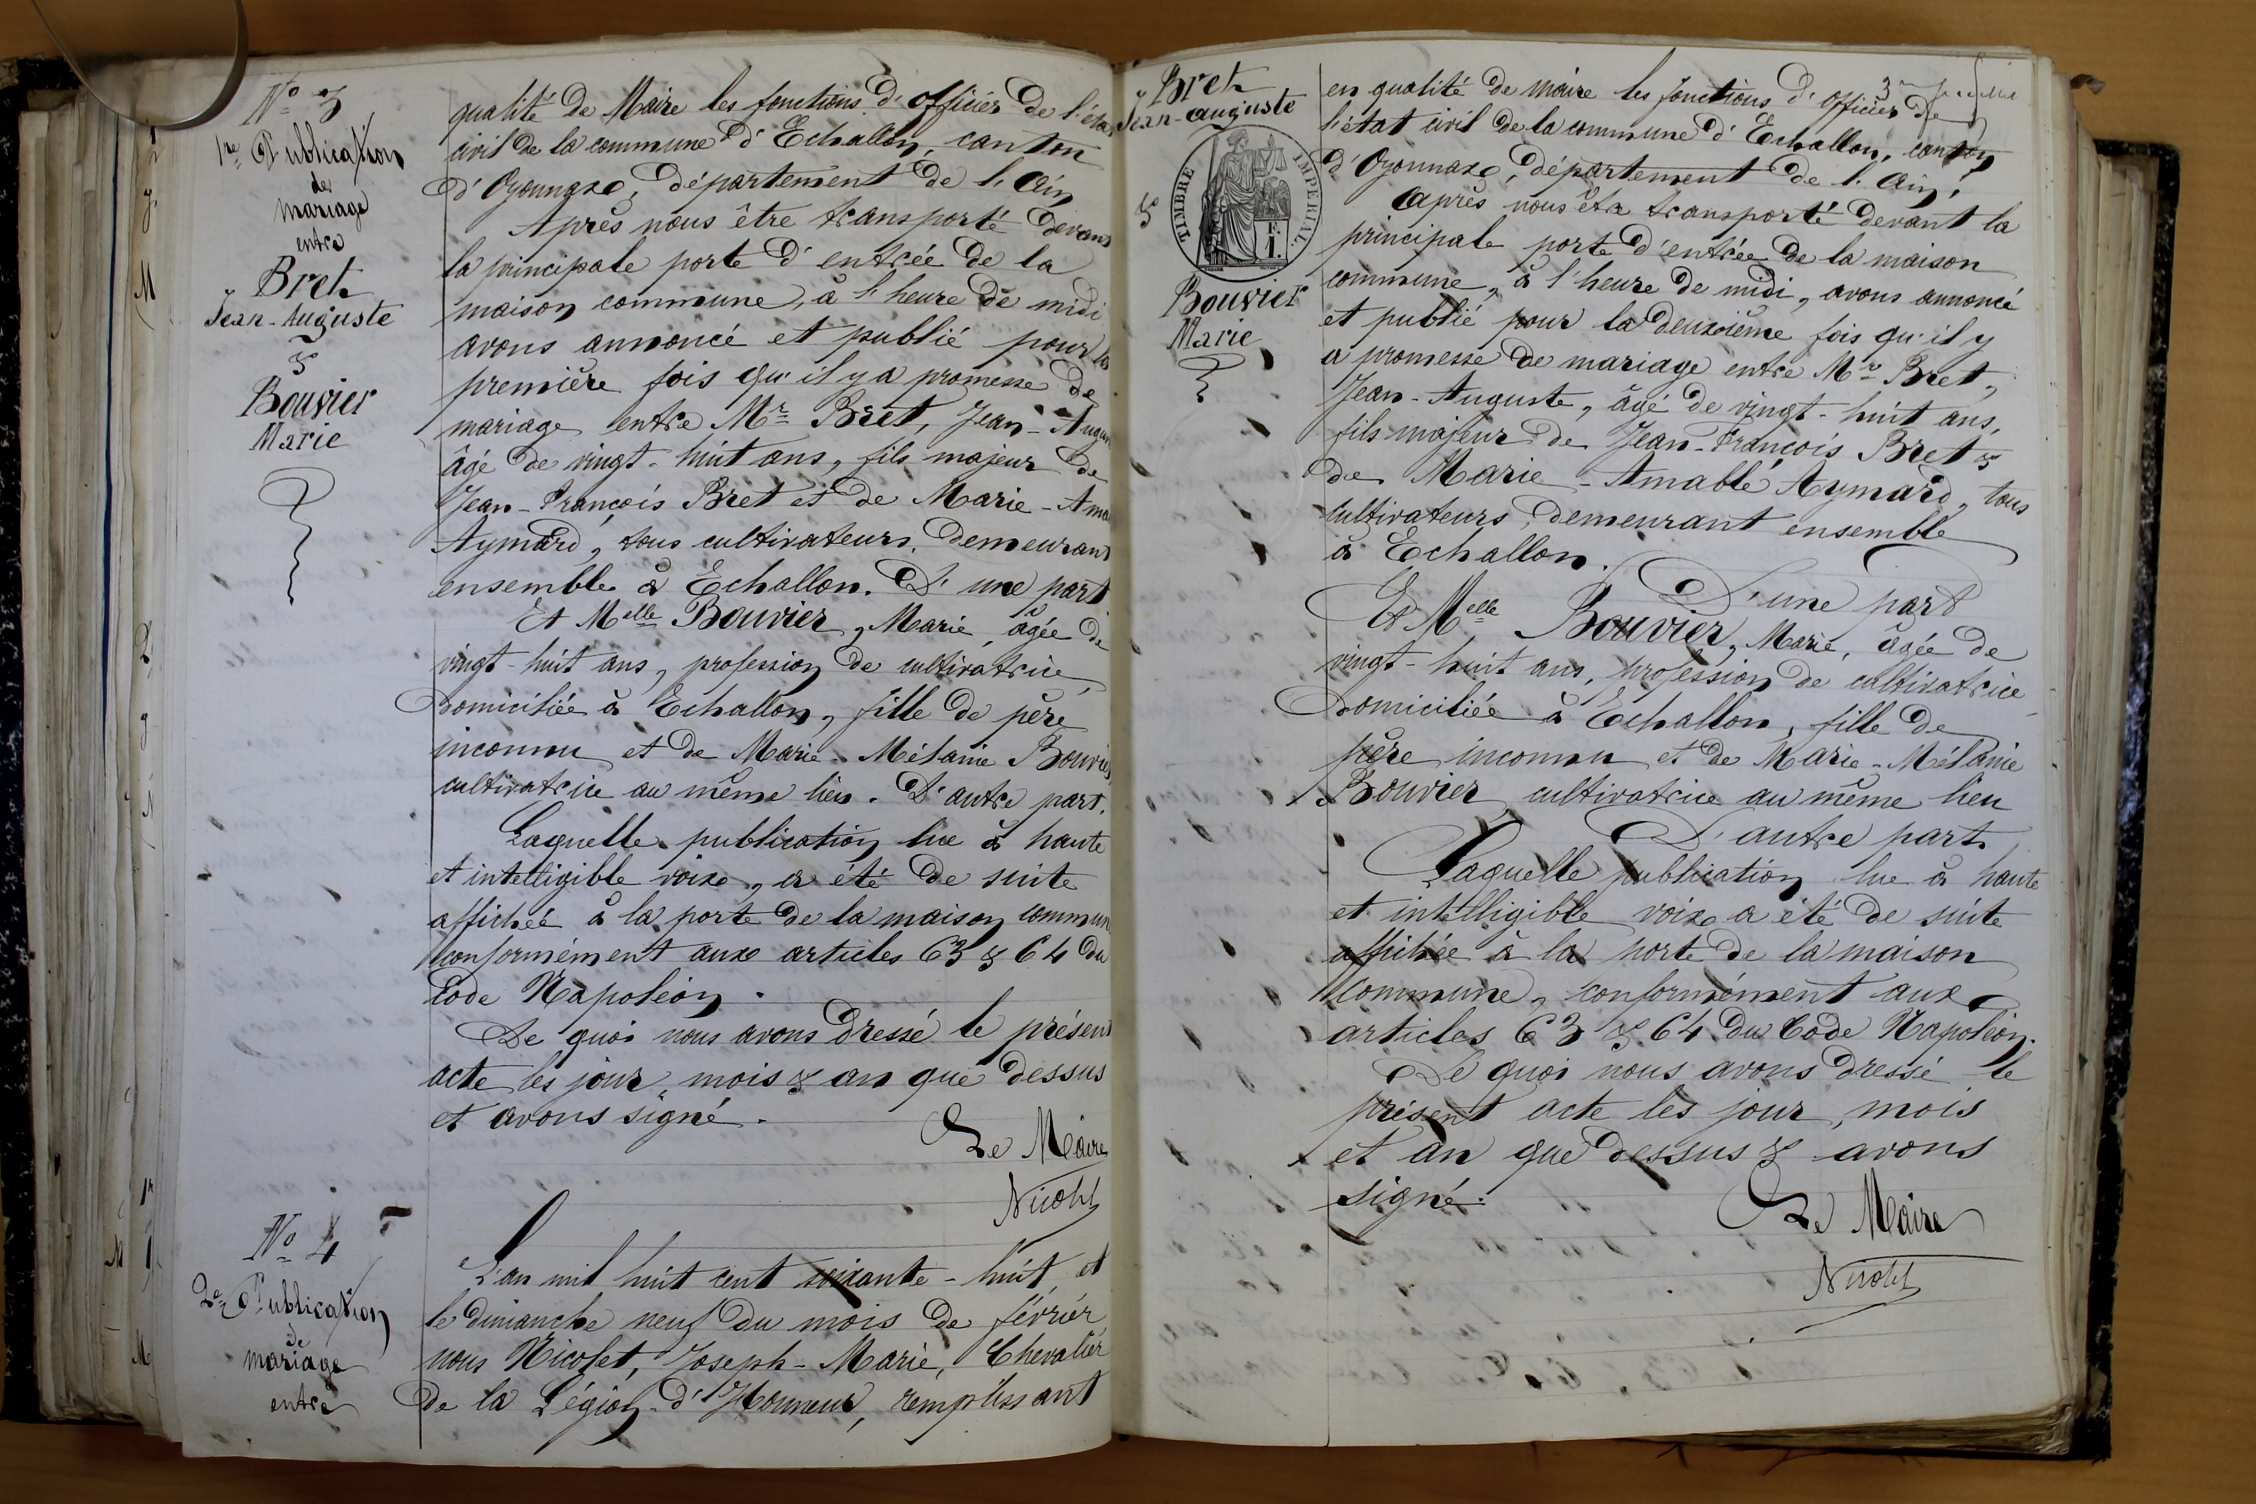 N° 3
1re Publication
de
mariage
entre
Bret
Jean-Auguste
&
Bouvier
Marie
qualité de Maire les fonctions d'officier de l'état
civil de la commune d'Echallon, canton
d'Oyonnax, département de l'Ain
Après nous être transporté devant
la principale porte d'entrée de la
maison commune, à l'heure de midi
avons annoncé et publié pour la
première fois qu'il y a promesse de
mariage entre Mr Bret, Jean-Augus
âgé de vingt-huit ans, fils majeur de
Jean-François Bret et de Marie-Ama
Aymard, tous cultivateurs, demeurant
ensemble à Echallon. D'une part
Et Melle Bouvier, Marie, âgée de
vingt-huit ans, profession de cultivatrice
domiciliée à Echallon, fille de père
inconnu et de Marie-Mélanie Bouvier
cultivatrice au même lieu. D'autre part.
Laquelle publication lue à haute
et intelligible voix, a été de suite
affichée à la porte de la maison commun
conformément aux articles 63 & 64 du
Code Napoléon.
De quoi nous avons dressé le présent
acte les jour, mois & an que dessus
et avons signé.
Le Maire
Nicolet
N° 4
2e Publication
de
mariage
entre
L'an mil huit cent soixante-huit et
le dimanche neuf du mois de février
nous Nicolet, Joseph-Marie, Chevalier
de la Légion d'Honneur, remplissant
Bret
Jean-Auguste
&
TIMBRE IMPERIAL
F.
1.
Bouvier
Marie
en qualité de maire les fonctions d'officier de
l'état civil de la commune d'Echallon, canton
d'Oyonnax, département de l'Ain,
Après nous être transporté devant la
principale porte d'entrée de la maison
commune, à l'heure de midi, avons annoncé
et publié pour la deuxième fois qu'il y
a promesse de mariage entre Mr Bret,
Jean-Auguste, âgé de vingt-huit ans,
fils majeur de Jean-François Bret &
de Marie-Amable Aymard, tous
cultivateurs, demeurant ensemble
à Echallon.
D'une part
Et Melle Bouvier, Marie, âgée de
vingt-huit ans, profession de cultivatrice
domiciliée à Echallon, fille de
père inconnu et de Marie-Mélanie
Bouvier cultivatrice au même lieu
D'autre part.
Laquelle publication lue à haute
et intelligible voix a été de suite
affichée à la porte de la maison
commune, conformément aux
articles 63 & 64 du Code Napoléon.
De quoi nous avons dressé le
présent acte les jour, mois
et an que dessus & avons
signé.
Le Maire
Nicolet